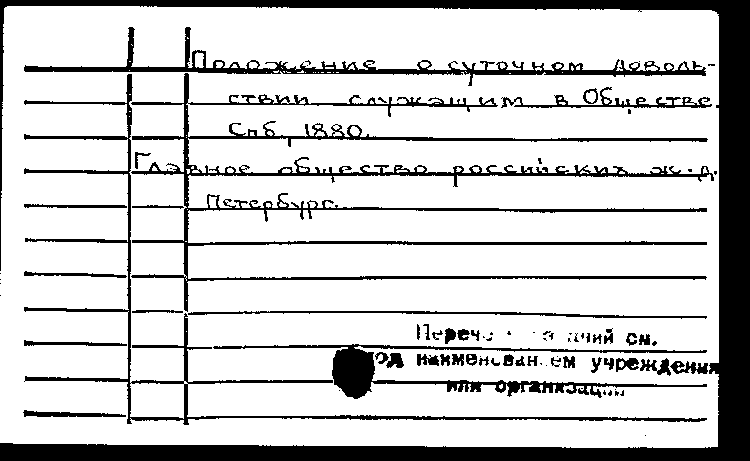 Положение о суточном доволь-
ствии служащим в Обществе.
Спб, 1880.
Главное общество российских ж.д.
Петербург.
см.
под наименованием учреждения
или организации